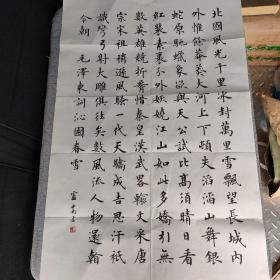 北國風光千里冰封萬里雪飄望長城內
外惟餘莽莽大河上下頓失滔滔山舞銀
蛇原馳蠟象欲與天公試比高須晴日看
紅裝素裹分外妖嬈江山如此多嬌引無
數英雄競折腰惜秦皇漢武略輸文采唐
宗宋祖稍遜風騷一代天驕成吉思汗祇
識彎弓射大雕俱往矣數風流人物還看
今朝 毛澤東詞沁園春雪